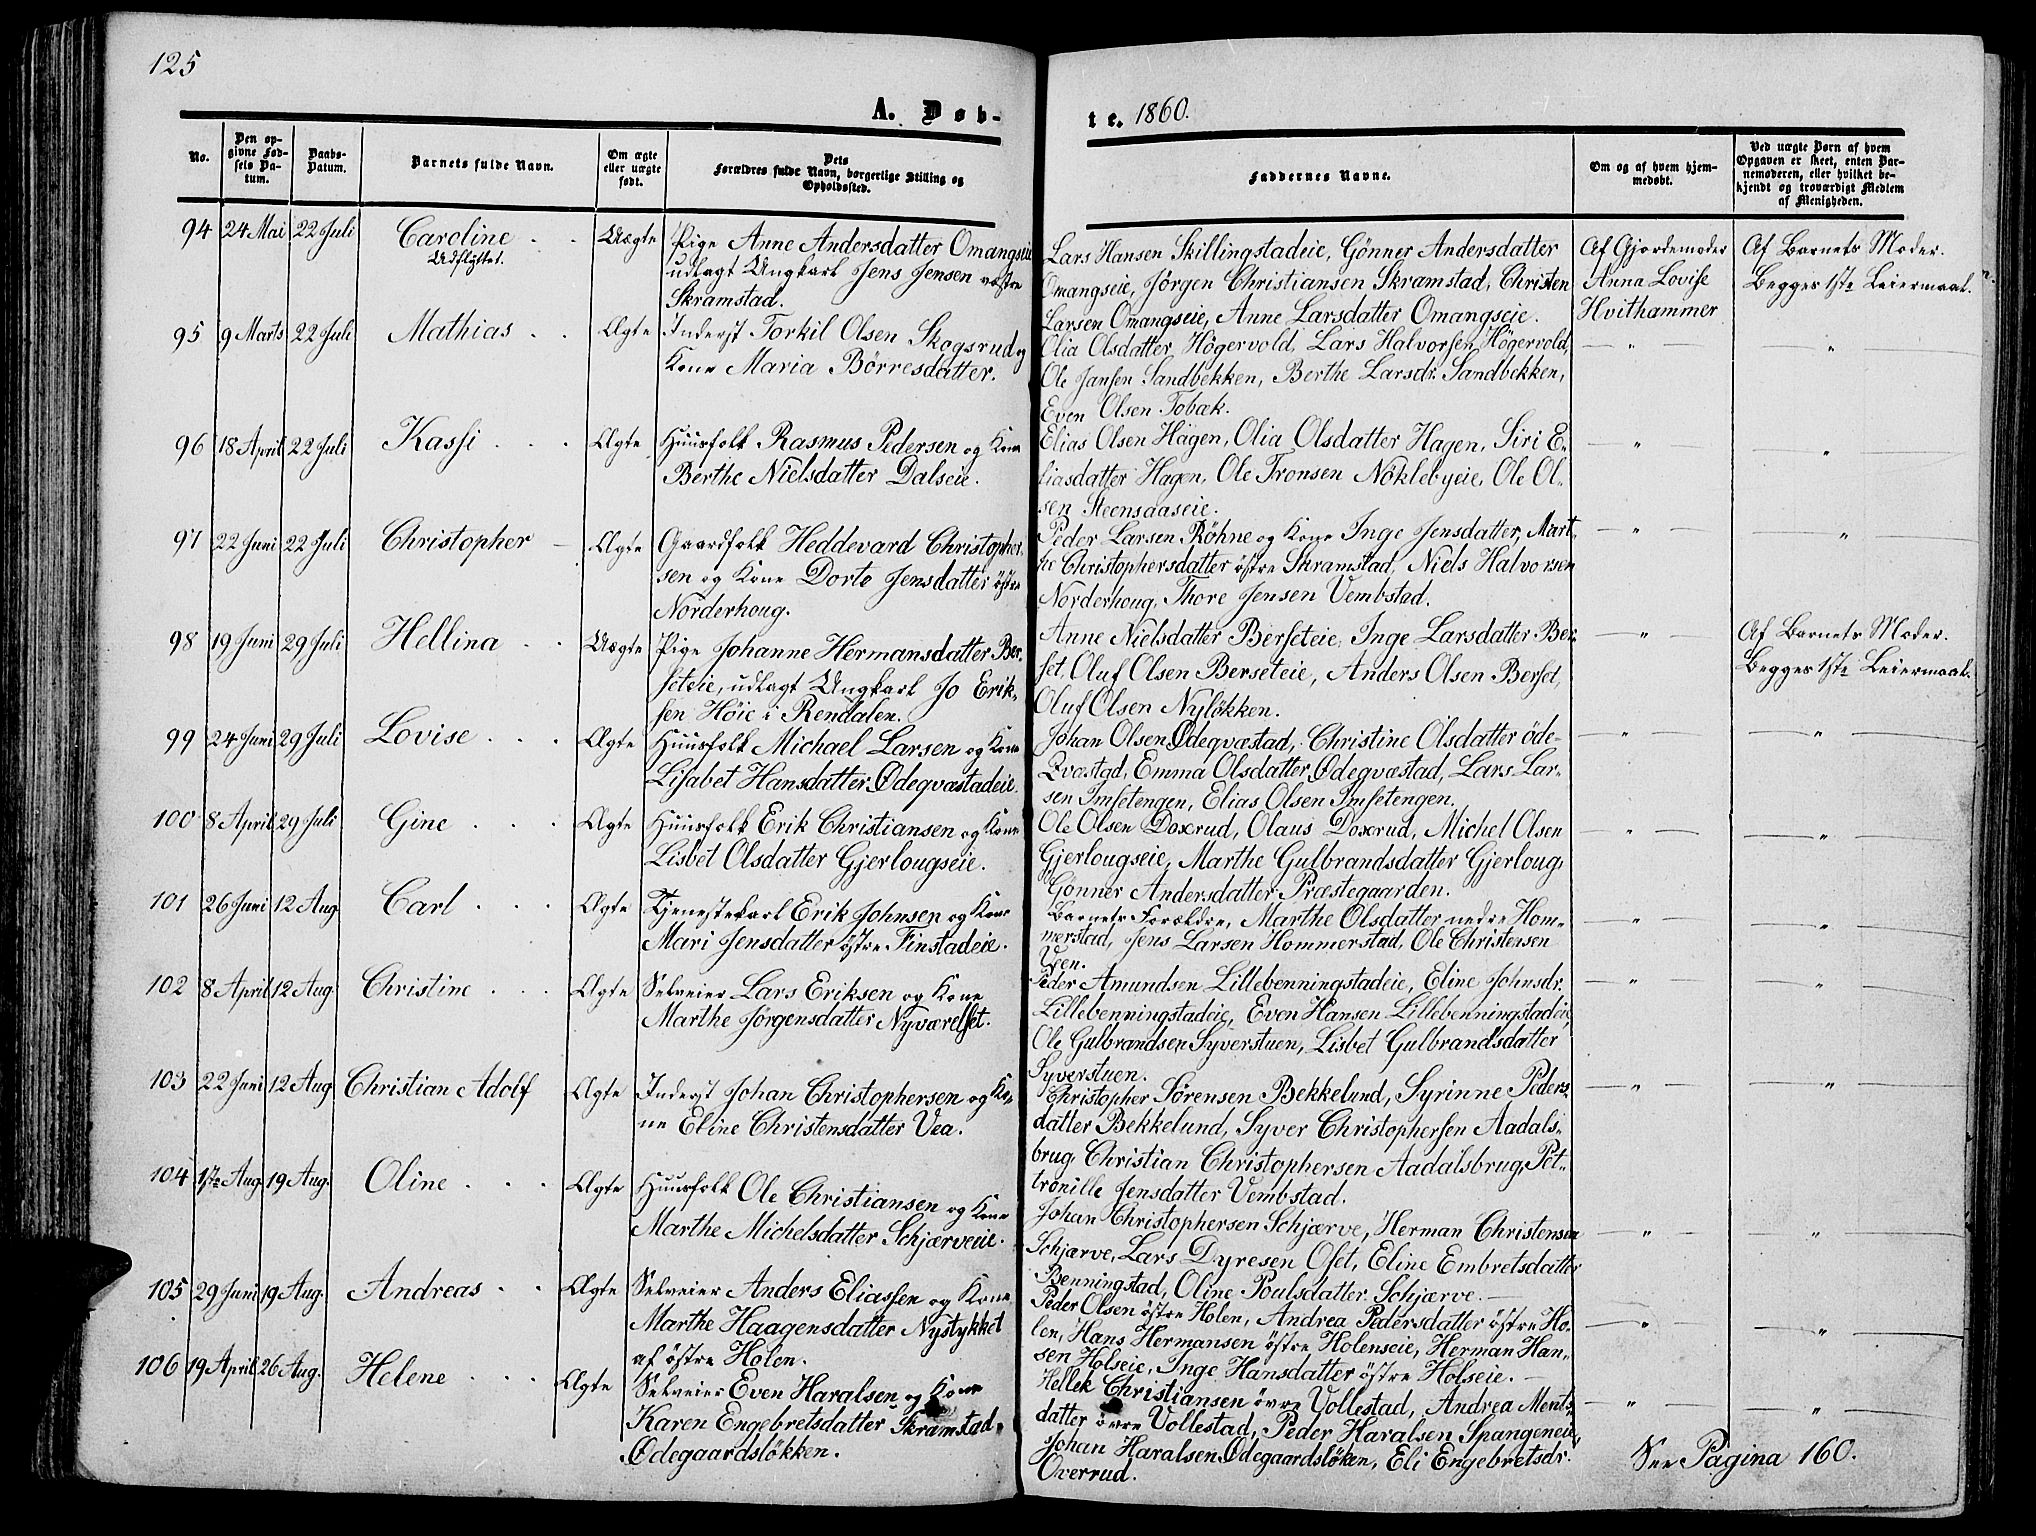 125
A. Døb-
te. 1860.
No.
Den op-
givne Fød-
sels Da-
tum.
Daabs-
Datum.
Barnets fulde Navn.
Om ægte
eller uægte
født.
Dets
Forældres fulde Navn, borgerlige Stilling og
Opholdssted.
Faddernes Navne.
Om og af hvem hjem-
medøbt.
Ved uægte Børn af hvem
Opgaven er skeet, enten Bar-
nemoderen, eller hvilket be-
kjendt og troværdigt Medlem
af Menigheden.
94 24 Mai 22 Juli Caroline . . Uægte Pige Anne Andersdatter Omangseie
Udflyttet.
udlagt Ungkarl Jens Jensen østre
Skramstad.
Lars Hansen Skillingstadeie, Gönner Andersdatter
Omangseie, Jörgen Christiansen Skramstad, Christen
Larsen Omangseie, Anne Larsdatter Omangseie.
Af Gjordemoder
Anna Lovise
Hvithammer
Af Barnets Moder.
Begges 1ste Leiermaal.
95 9 Marts 22 Juli Mathias . . Ægte Inderst Torkil Olsen Skogsrud og
Kone Maria Börresdatter.
Olia Olsdatter Högervold, Lars Halvorsen Högervold,
Ole Jansen Sandbekken, Berthe Larsdr. Sandbekken,
Even Olsen Tobæk.
— " — — " —
96 18 April 22 Juli Kassi . . . Ægte Huusfolk Rasmus Pedersen og Kone
Berthe Nielsdatter Dalseie.
Elias Olsen Hagen, Olia Olsdatter Hagen, Siri E-
liasdatter Hagen, Ole Tronsen Nöklebyeie, Ole Ol-
sen Steensaaseie.
— " — — " —
97 22 Juni 22 Juli Christopher — Ægte Gaardfolk Heddevard Christopher-
sen og Kone Dorte Jensdatter östre
Norderhoug.
Peder Larsen Röhne og Kone Inge Jensdatter, Mart-
he Christophersdatter östre Skramstad, Niels Halvorsen
Norderhoug, Thore Jensen Vembstad.
— " — — " —
98 19 Juni 29 Juli Hellina . . Uægte Pige Johanne Hermansdatter Ber-
seteie, udlagt Ungkarl Jo Erik-
sen Höie i Rendalen.
Anne Nielsdatter Berseteie, Inge Larsdatter Ber-
set, Oluf Olsen Berseteie, Anders Olsen Berset,
Oluf Olsen Nylökken.
— " — Af Barnets Moder.
Begges 1ste Leiermaal.
99 24 Juni 29 Juli Lovise . . . Ægte Huusfolk Michael Larsen og Kone
Lisabet Hansdatter Ödeqvæstadeie.
Johan Olsen Ödeqvæstad, Christine Olsdatter öde-
Qvæstad, Emma Olsdatter Ödeqvæstad, Lars Lar-
sen Imsetengen, Elias Olsen Imsetengen.
— " — — " —
100 8 April 29 Juli Gine . . . Ægte Huusfolk Erik Christiansen og Kone
Lisbet Olsdatter Gjerlougseie.
Ole Olsen Doxrud, Olaus Doxrud, Michel Olsen
Gjerlougseie, Marthe Gulbrandsdatter Gjerloug,
Gönner Andersdatter Præstegaarden.
— " — — " —
101 26 Juni 12 Aug Carl . . . Ægte Tjenestekarl Erik Johnsen og Kone
Mari Jensdatter östre Finstadeie.
Barnets Forældre, Marthe Olsdatter nedre Hom-
merstad, Jens Larsen Hommerstad, Ole Christensen
Veen.
— " — — " —
102 8 April 12 Aug Christine . . . Ægte Selveier Lars Eriksen og Kone
Marthe Jörgensdatter Nyværelset.
Peder Amundsen Lillebenningstadeie, Eline Johnsdr.
Lillebenningstadeie, Even Hansen Lillebenningstadeie,
Ole Gulbrandsen Syverstuen, Lisbet Gulbrandsdatter
Syverstuen.
— " — — " —
103 22 Juni 12 Aug Christian Adolf Ægte Inderst Johan Christophersen og Ko-
ne Eline Christensdatter Vea.
Christopher Sörensen Bekkelund, Syrinne Peders-
datter Bekkelund, Syver Christophersen Aadals-
brug, Christian Christophersen Aadalsbrug, Pet-
tronille Jensdatter Vembstad.
— " — — " —
104 1ste Aug 19 Aug. Oline . . . Ægte Huusfolk Ole Christiansen og Kone
Marthe Michelsdatter Schjærveeie.
Johan Christophersen Schjærve, Herman Christensen
Schjærve, Lars Dyresen Oset, Eline Embretsdatter
Benningstad, Oline Poulsdatter Schjærve. —
— " — — " —
105 29 Juni 19 Aug. Andreas . . Ægte Selveier Anders Eliassen og Kone
Marthe Haagensdatter Nystykket
af östre Holen.
Peder Olsen östre Holen, Andrea Pedersdatter östre Ho-
len, Hans Hermansen östre Holenseie, Herman Han-
sen Holseie, Inge Hansdatter östre Holseie. —
— " — — " —
106 19 April 26 Aug. Helene . . . Ægte Selveier Even Haralsen og Kone
Karen Engebretsdatter Skramstad-
Ödegaardslökken.
Hellek Christiansen övre Vollestad, Andrea Ments-
datter övre Vollestad, Peder Haralsen Spangeneie,
Johan Haralsen Ödegaardslöken, Eli Engebretsdr.
Overrud.
— " — — " —
See Pagina 160.